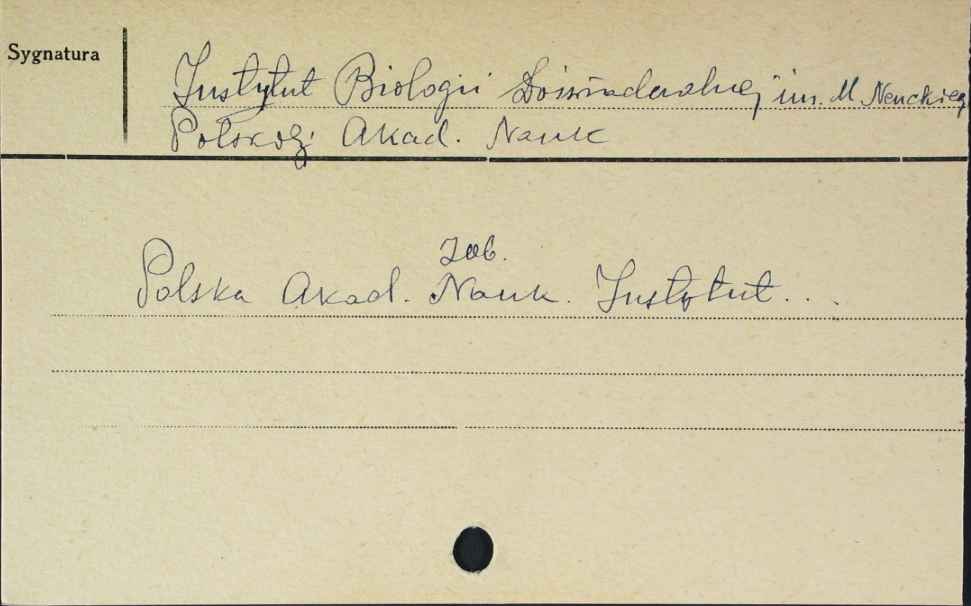 Sygnatura
Instytut Biologii Doświadczalnej im. M. Nenckiego
Polskiej Akad. Nauk
Zob.
Polska Akad. Nauk. Instytut...